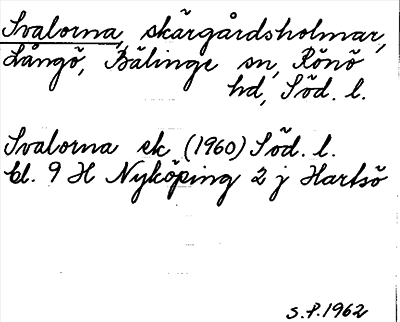 Svalorna, skärgårdsholmar,
Långö, Bälinge sn, Rönö
hd, Söd. l.
Svalorna ek (1960) Söd. l.
bl. 9 H Nyköping 2 j Hartsö
S.P. 1962